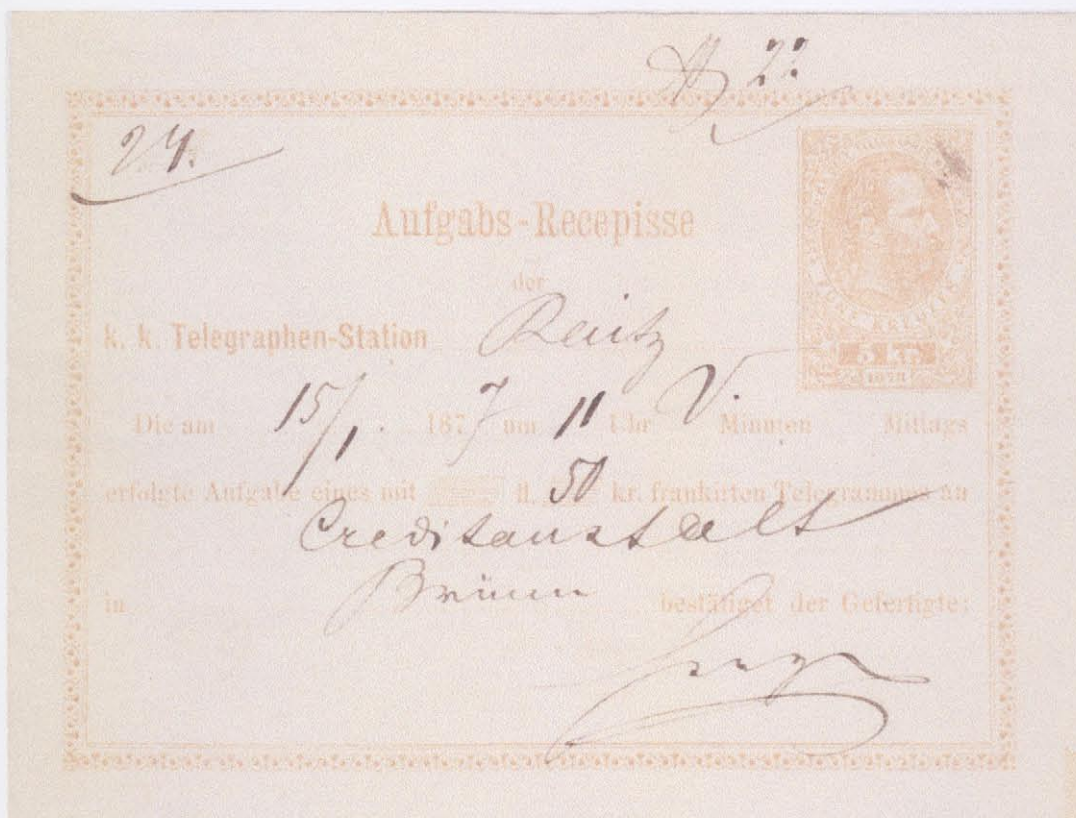 22
24.
Aufgabs-Recepisse
der
k. k. Telegraphen-Station Raitz
FÜNF KREUZER
5 kr.
1873
Die am 15/1. 1877 um 11 Uhr V. Minuten Mittags
erfolgte Aufgabe eines mit fl. 50 kr. frankirten Telegrammes an
Creditanstalt
in Brünn bestätiget der Gefertigte: